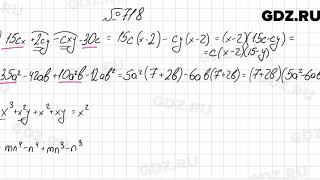 GDZ.RU
№718
15cx + 2cy - cxy - 30c = 15c(x-2) - cy(x-2) = (x-2)(15c-cy) =
= c(x-2)(15-y)
35a² - 42ab + 10a²b - 12ab² = 5a²(7+2b) - 6ab(7+2b) = (7+2b)(5a²-6ab
x³ + x²y + x² + xy = x²
mn⁴ - n⁴ + mn³ - n³